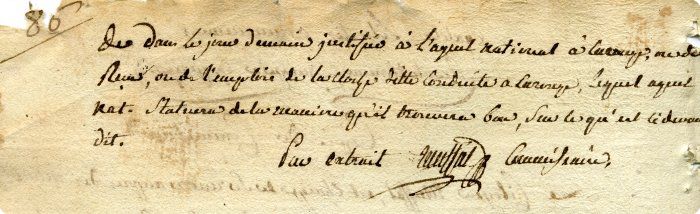 86
de dans le jour demain justifiée à l'agent national à Larouge, ou de
Reçu, ou de l'emplois de la cloche ditte conduite a Larouge, lequel agent
nat. Statuera de la maniere qu'il trouvera bon, Sur ce qu'est ci devant
dit.
Par extrait Commissaire,